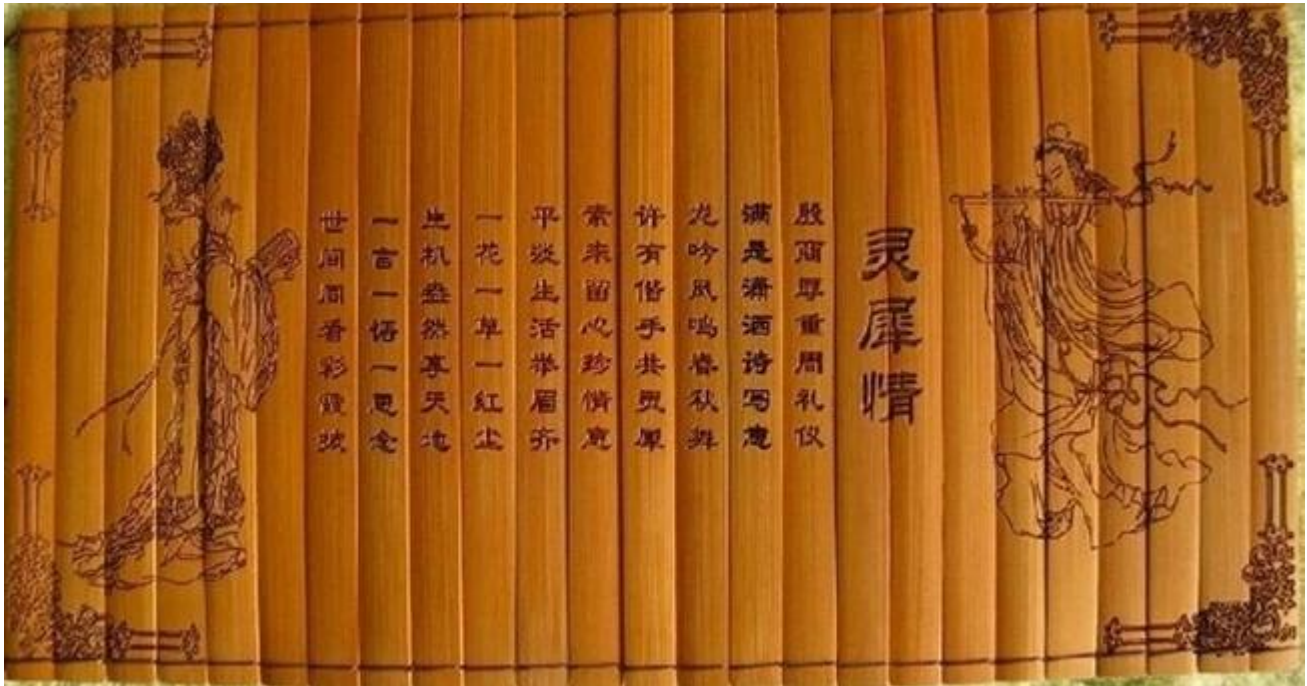 灵犀情
殷商尊重周礼仪
满是潇洒诗写意
龙吟凤鸣春秋舞
许有偕手共灵犀
素来留心珍情意
平淡生活举眉齐
一花一草一红尘
生机盎然享天地
一言一语一思念
世间同看彩霞欢